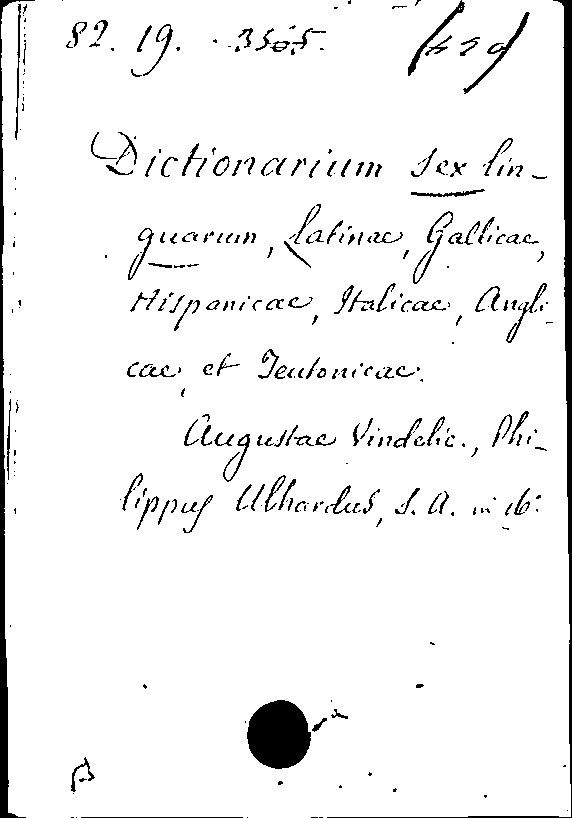 82. 19. 3505. (429)
Dictionarium sex lin-
guarum, Latinae, Gallicae,
Hispanicae, Italicae, Angli-
cae, et Teutonicae.
Augustae Vindelic., Phi-
lippus Ulhardus, S. A. in 16°.